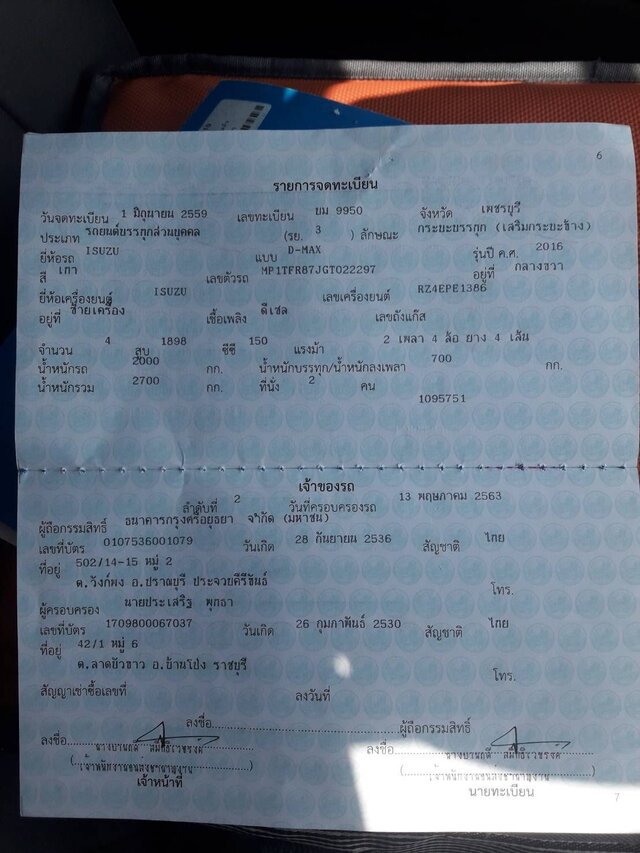 6
รายการจดทะเบียน
วันจดทะเบียน 1 มิถุนายน 2559 เลขทะเบียน ยม 9950 จังหวัด เพชรบุรี
ประเภท รถยนต์บรรทุกส่วนบุคคล (รย. 3 ) ลักษณะ กระบะบรรทุก (เสริมกระบะข้าง)
ยี่ห้อรถ ISUZU แบบ D-MAX รุ่นปี ค.ศ. 2016
สี เทา เลขตัวรถ MP1TFR87JGT022297 อยู่ที่ กลางขวา
ยี่ห้อเครื่องยนต์ ISUZU เลขเครื่องยนต์ RZ4EPE1386
อยู่ที่ ซ้ายเครื่อง เชื้อเพลิง ดีเซล เลขถังแก๊ส
จำนวน 4 สูบ 1898 ซีซี 150 แรงม้า 2 เพลา 4 ล้อ ยาง 4 เส้น
น้ำหนักรถ 2000 กก. น้ำหนักบรรทุก/น้ำหนักลงเพลา 700 กก.
น้ำหนักรวม 2700 กก. ที่นั่ง 2 คน
1095751
เจ้าของรถ
ลำดับที่ 2 วันที่ครอบครองรถ 13 พฤษภาคม 2563
ผู้ถือกรรมสิทธิ์ ธนาคารกรุงศรีอยุธยา จำกัด (มหาชน)
เลขที่บัตร 0107536001079 วันเกิด 28 กันยายน 2536 สัญชาติ ไทย
ที่อยู่ 502/14-15 หมู่ 2
ต.วังก์พง อ.ปราณบุรี ประจวบคีรีขันธ์ โทร.
ผู้ครอบครอง นายประเสริฐ พุทธา
เลขที่บัตร 1709800067037 วันเกิด 26 กุมภาพันธ์ 2530 สัญชาติ ไทย
ที่อยู่ 42/1 หมู่ 6
ต.ลาดบัวขาว อ.บ้านโป่ง ราชบุรี โทร.
สัญญาเช่าซื้อเลขที่ ลงวันที่
ลงชื่อ ผู้ถือกรรมสิทธิ์
ลงชื่อ ลงชื่อ
(เจ้าพนักงานขนส่งชำนาญงาน) (เจ้าพนักงานขนส่งชำนาญงาน)
เจ้าหน้าที่ นายทะเบียน
7